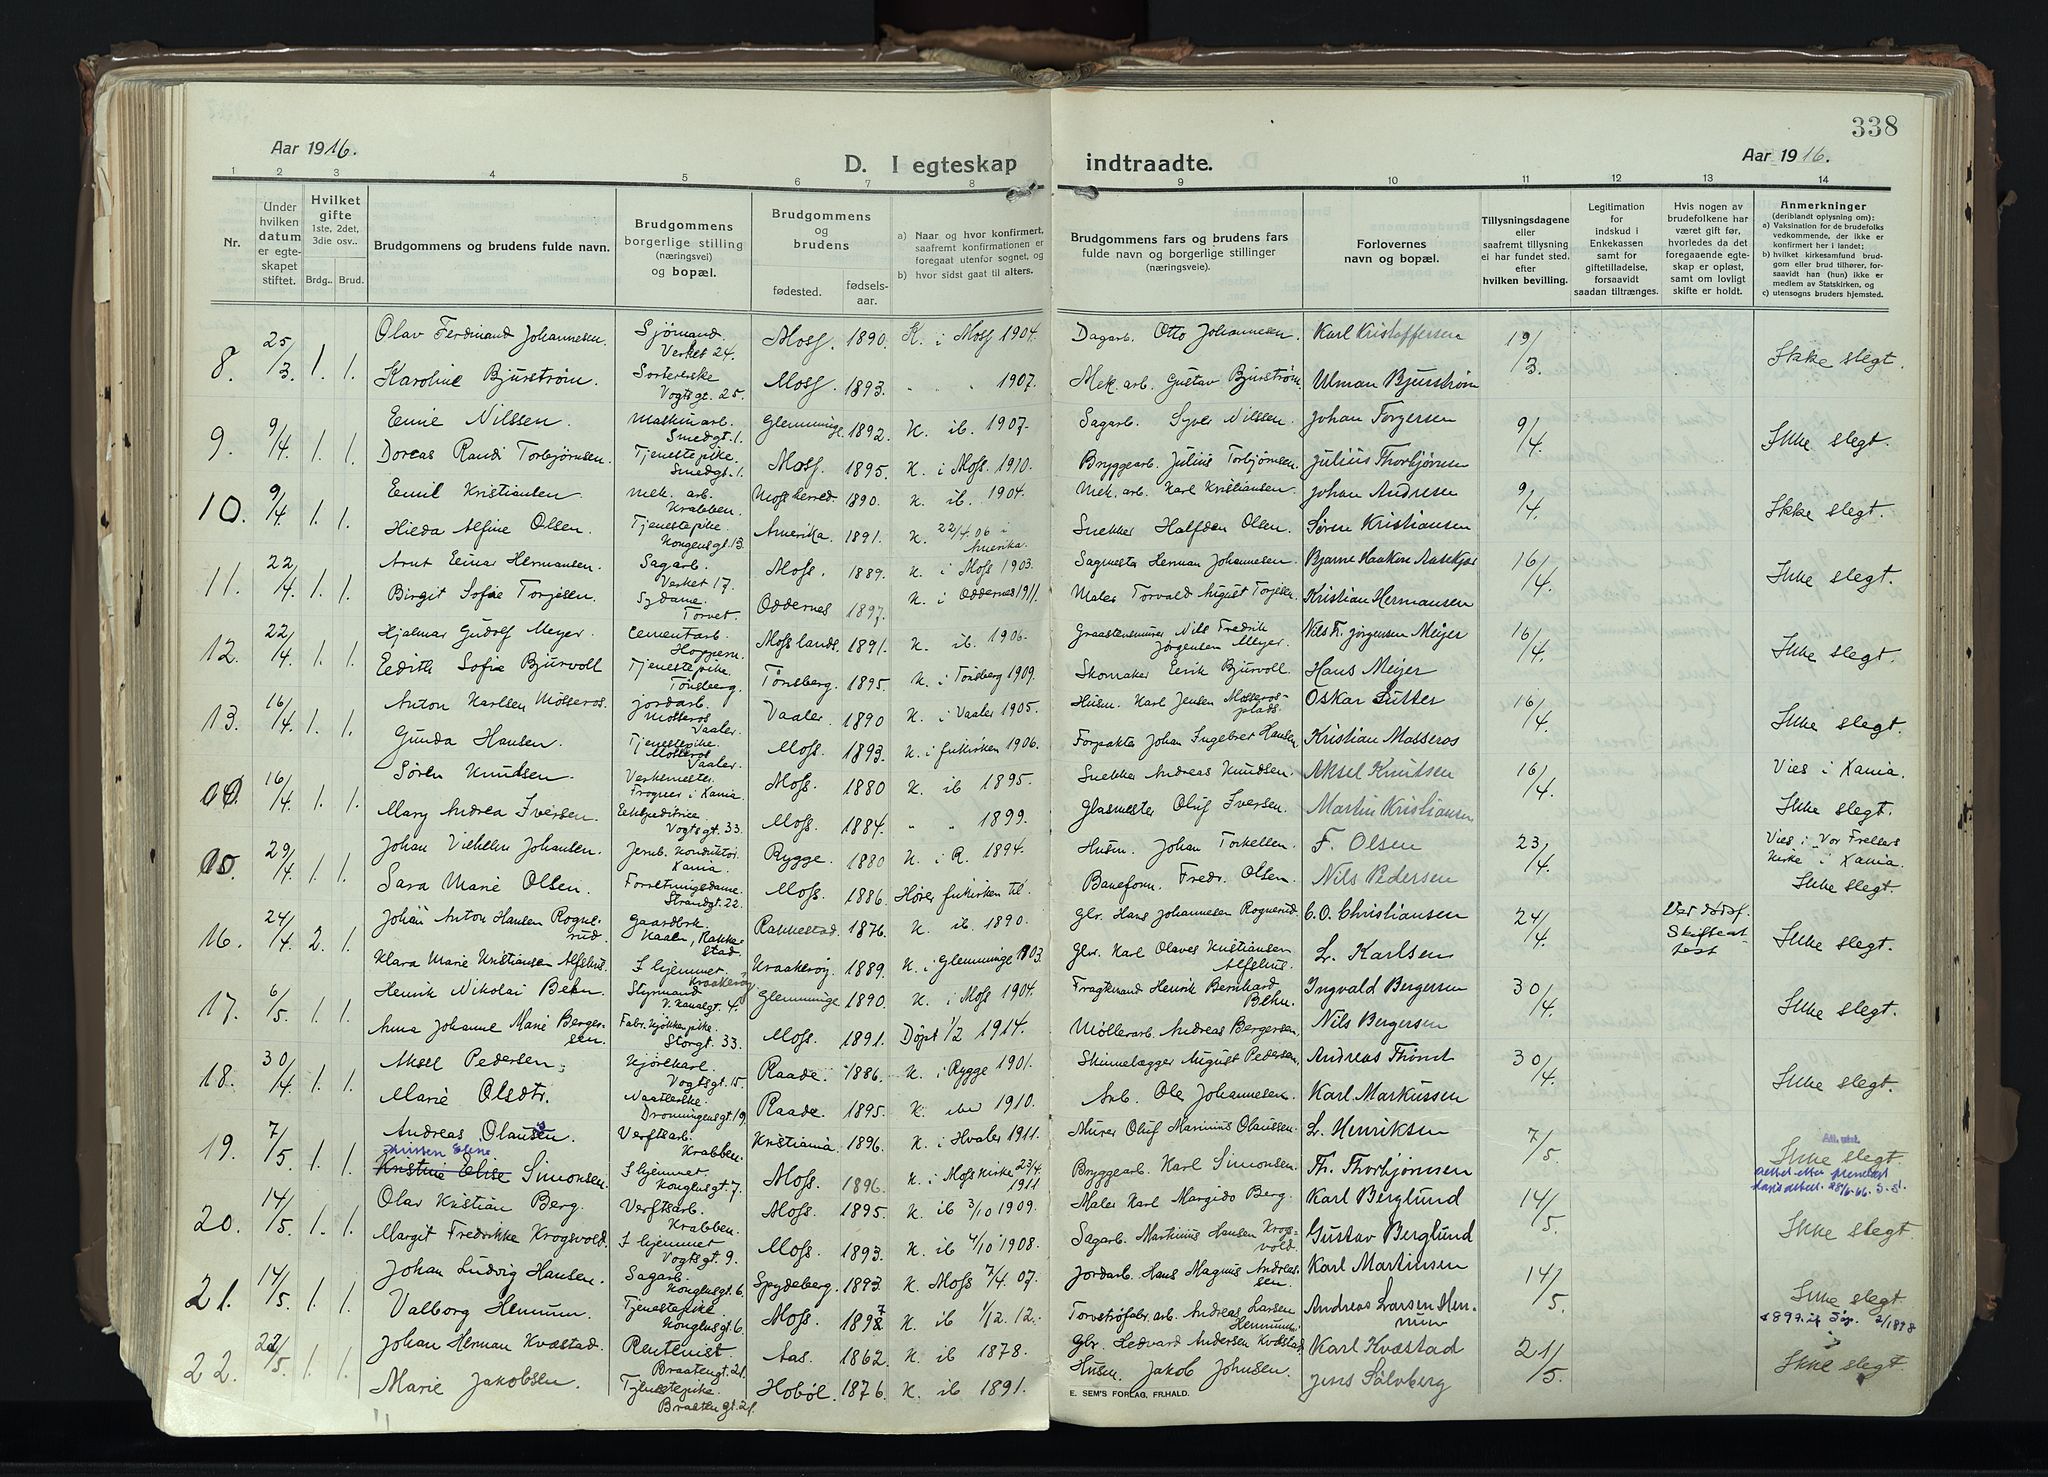 338
Aar 1916.
D. I egteskap indtraadte.
Aar 1916.
1 2 3 4 5 6 7 8 9 10 11 12 13 14
Nr.
Under hvilken datum er egteskapet stiftet.
Hvilket gifte 1ste, 2det, 3die osv..
Brdg.. Brud.
Brudgommens og brudens fulde navn.
Brudgommens borgerlige stilling (næringsvei) og bopæl.
Brudgommens og brudens
fødested. fødselsaar.
a) Naar og hvor konfirmert, saafremt konfirmationen er foregaat utenfor sognet, og
b) hvor sidst gaat til alters.
Brudgommens fars og brudens fars fulde navn og borgerlige stillinger (næringsveie).
Forlovernes navn og bopæl.
Tillysningsdagene eller saafremt tillysning ei har fundet sted. efter hvilken bevilling.
Legitimation for indskud i Enkekassen samt for giftetilladelse, forsaavidt saadan tiltrænges.
Hvis nogen av brudefolkene har været gift før, hvorledes da det foregaaende egteskap er opløst, samt om lovligt skifte er holdt.
Anmerkninger (deriblandt oplysning om): a) Vaksination for de brudefolks vedkommende, der ikke er konfirmert her i landet; b) hvilket kirkesamfund brudgom eller brud tilhører, forsaavidt han (hun) ikke er medlem av Statskirken, og c) utensogns bruders hjemsted.
8. 25/3. 1. 1. Olav Ferdinand Johannesen. Sjømand. Verket 24. Moss. 1890. K. i Moss 1904. Dagarb. Otto Johannesen. Karl Kristoffersen 19/3. Ikke slegt.
Karoline Bjurstrøm. Sorterske Vogtsgt. 25. Moss. 1893. " " 1907. Mek. arb. Gustav Bjurstrøm. Ulman Bjurstrøm
9. 9/4. 1. 1. Einie Nilssen. Maskinarb. Smedgt. 1. Glemminge 1892. K. ib. 1907. Sagarb. Syver Nilssen. Johan Torgersen 9/4. Ikke slegt.
Dorcas Randi Torbjørnsen. Tjenestepike. Smedgt. 1. Moss. 1895. K. i Moss. 1910. Bryggearb. Julius Torbjørnsen. Julius Thorbjørnsen
10. 9/4 1. 1. Emil Kristiansen. Mek. arb. Krabben. Moss herred. 1890. K. ib. 1904. Mek. arb. Karl Kristiansen. Johan Andresen 9/4. Ikke slegt.
Hilda Alfine Olsen. Tjenestepike. Kongensgt. 13. Amerika. 1891. K. 22/4. 06 i Amerika. Snekker Halfdan Olsen. Søren Kristiansen
11. 22/4. 1. 1. Arnt Einar Hermansen. Sagarb. Verket 17. Moss. 1889. K. i Moss 1903. Sagmester Herman Johannesen. Bjarne Haakon 16/4. Ikke slegt.
Birgit Sofie Torjesen. Sydame. Torvet. Oddernes 1897. K. i Oddernes 1911. Maler Torvald August Torjesen. Kristian Hermansen
12. 22/4. 1. 1. Hjalmar Gudolf Meyer. Cementarb. Hoppern. Moss lands. 1891. K. ib. 1906. Graastensmurer Nils Fredrik Jørgensen Meyer. Nils Fr. Jørgensen Meijer 16/4. Ikke slegt.
Edith Sofie Bjurvoll Tjenestepike. Tønsberg. Tønsberg. 1895. K. i Tønsberg 1909. Skomaker Eerik Bjurvoll. Hans Meijer
13. 16/4. 1. 1. Anton Karlsen Mosseros. Jordarb. Mosseros Vaaler. Vaaler. 1890 K. i Vaaler 1905. Husm. Karl Jensen Mosserosplads. Oskar Sutter 16/4. Ikke slegt.
Gunda Hansen. Tjenestepike. Mosseros Vaaler. Moss. 1893. K. i frikirken 1906. Forpakter Johan Ingebret Hansen. Kristian Mosseros
16/4. 1. 1. Søren Knudsen. Verksmester. Frogner i Xania. Moss. 1880 K. ib 1895. Snekker Andreas Knudsen. Aksel Knutsen 16/4. Vies i Xania.
Mary Andrea Iversen. Ekspeditrice Vogtsgt. 33. Moss. 1884. " " 1899. Glasmester Oluf Iversen. Martin Kristiansen Ikke slegt.
15. 29/4. 1. 1. Johan Vilhelm Johansen. Jernb. Konduktør. Xania. Rygge. 1880 K. i R. 1894. Husm. Johan Torkelsen. F. Olsen 23/4. Vies i Vor Frelsers Kirke i Xania.
Sara Marie Olsen. Forretningsdame. Strandgt. 22. Moss. 1886. Hører frikirken til. Baneform. Fredr. Olsen. Nils Pedersen Ikke slegt.
16. 24/4. 2. 1. Johan Anton Hansen Rognerud. Gaardbr. Rakkestad. Rakkestad. 1876. K. ib 1890. Gbr. Hans Johannesen Rognerud. C. O. Christiansen 24/4. Skifteattest Ikke slegt.
Klara Marie Kristiansen Alfshus. I hjemmet. Kraakerøy. Kraakerøy. 1889. K. i Glemminge 1903. Gbr. Karl Olaves Kristiansen Alfshus. L. Karlsen
17. 6/5. 1. 1. Henrik Nikolai Behn. Styrmand. V. Kanalgt. 4. Glemminge 1890. K. i Moss 1904. Fragtemand Henrik Bernhard Behn. Ingvald Bergersen 30/4. Ikke slegt.
Anna Johanne Marie Bergersen. Storgt. 33. Moss. 1891. Døpt 1/2 1914. Møllerarb. Andreas Bergersen. Nils Bergersen
18. 30/4. 1. 1. Aksel Pedersen. Kjørekarl. Vogtsgt. 15. Raade. 1886. K. i Rygge 1901. Skinnelægger August Pedersen. Andreas 30/4. Ikke slegt.
Marie Olsdtr. Dronningensgt. 19. Raade. 1895. K. 1910. Arb. Ole Johannesen. Karl Markussen
19. 7/5. 1. 1. Andreas Olausen. Verftsarb. Krabben. Kristiania 1896. K. i Hvaler 1911. Murer Oluf Marinius Olaussen. L. Henriksen 7/5. Ikke slegt.
Kristine Elise Simonsen. I hjemmet. Kongensgt. 7. Moss. 1896. K. i Moss Kirke 23/4. 1911. Bryggearb. Karl Simonsen. Fr. Thorbjørnsen
20. 14/5. 1. 1. Olav Kristian Berg. Verftsarb. Krabben. Moss. 1895. K. ib 3/10 1909. Maler Karl Margido Berg. Karl Berglund 14/5. Ikke slegt.
Margit Fredrikke Krogsvold. I hjemmet Vogtsgt. 9. Moss. 1893. K. ib 4/10 1908. Sagarb. Martinius Hansen Krogsvold. Gustav Berglund
21. 14/5. 1. 1. Johan Ludvig Hansen. Sagarb. Kongensgt. 6 Spydeberg. 1893. K. Moss 7/4. 07. Jordarb. Hans Magnus Andreassen. Karl Martinsen 14/5. Ikke slegt.
Valborg Hennum. Tjenestepike Kongensgt. 6. Moss. 1897 K. ib 1/12. 12. Torvstrøfabr. arb. Andreas Larsen Hennum. Andreas Larsen Hennum
22. 22/5. 1. 1. Johan Herman Kvæstad. Rentenist. Braatengt. 21. Aas. 1862. K. ib 1878. Gbr. Hedvard Andersen Kvæstad. Karl Kvæstad 21/5. Ikke slegt.
Marie Jakobsen. Tjenestepike. Braatengt. 21. Hobøl. 1876. K. ib 1891. Husm. Jakob Johnsen. Jens Sølvberg
E. SEM'S FORLAG, FR.HALD.